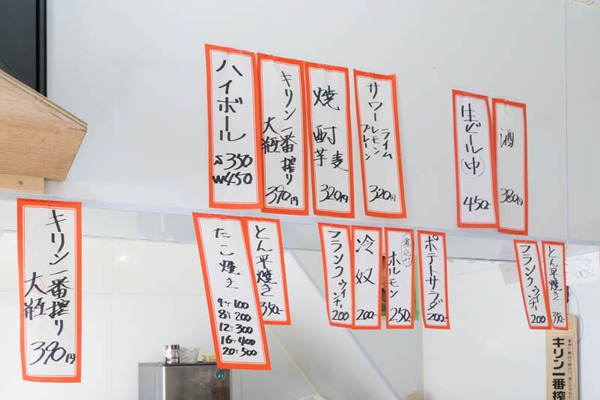 ハイボール
S350
W450
キリン一番搾り
大瓶
390円
焼酎
麦
芋
320円
サワー
ライム
レモン
プレーン
320円
生ビール(中)
450-
酒
380円
キリン一番搾り
大瓶
390円
たこ焼き
4ケ100
8ケ200
12ケ300
16ケ400
20ケ500
とん平焼き
350-
フランクウインナー
200
冷奴
200-
ホルモン
250-
ポテトサラダ
200-
フランクウインナー
200
とん平焼き
350-
キリン一番搾